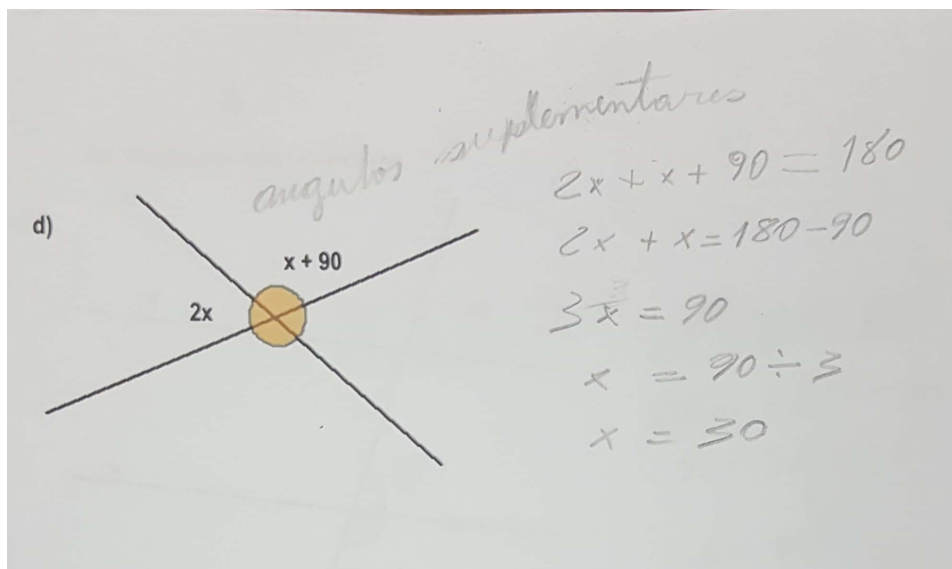 angulos suplementares
d)
x + 90
2x
2x + x + 90 = 180
2x + x = 180 - 90
3x = 90
x = 90 ÷ 3
x = 30